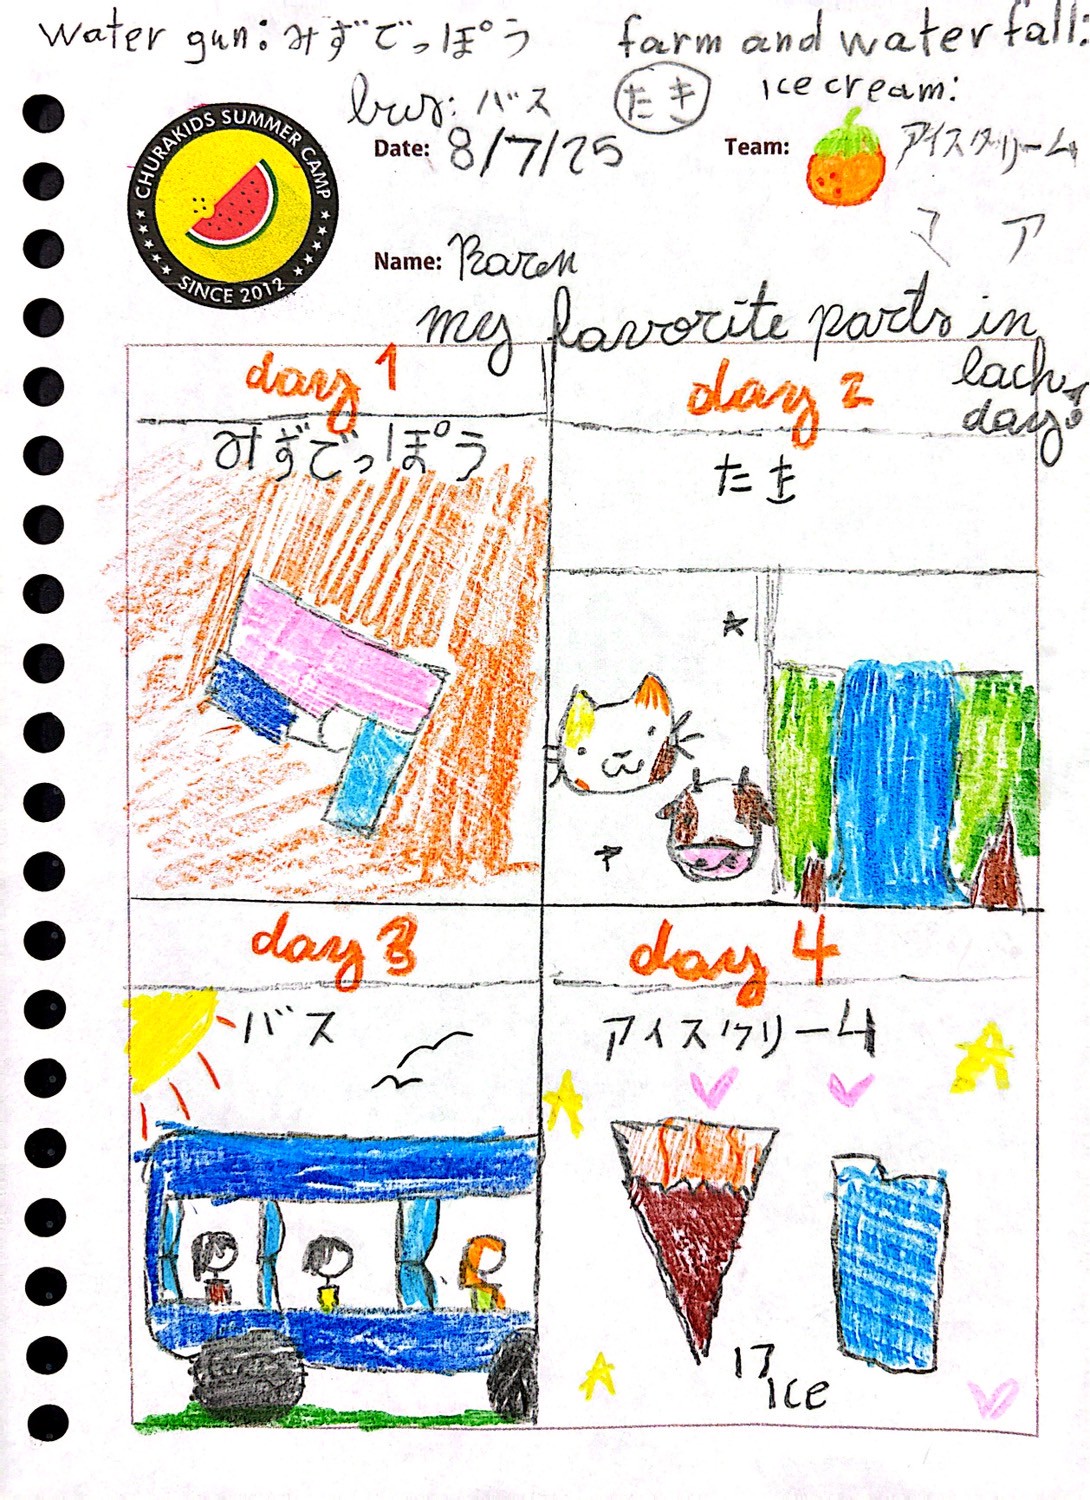 water gun: みずでっぽう
farm and water fall:
たき
ice cream:
アイスクリーム
bus: バス
CHURAKIDS SUMMER CAMP
SINCE 2012
Date: 8/7/25
Team:
ミ ア
Name: Karen
my favorite parts in
each
day!
day 1
みずでっぽう
day 2
たき
day 3
バス
day 4
アイスクリーム
17
ice